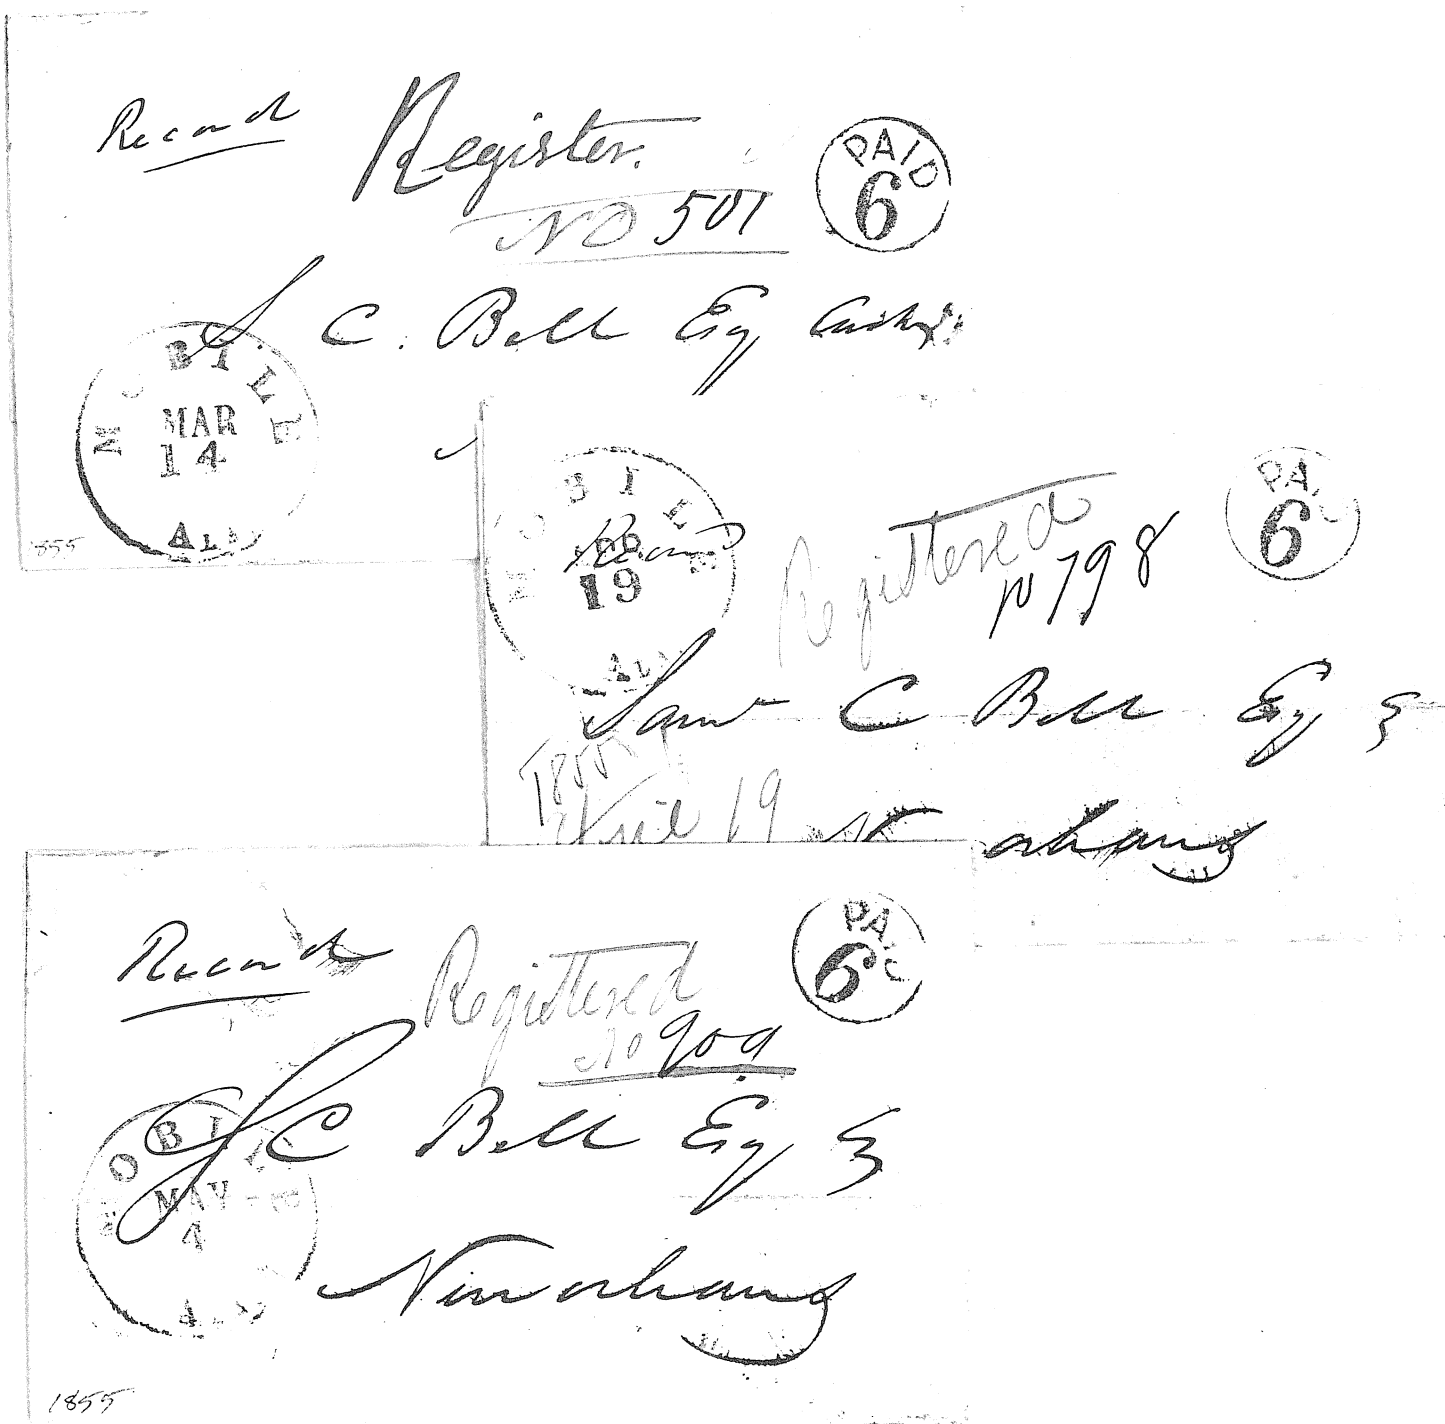 Record
Register.
NO 501
PAID
6
S. C. Bell Esq Cash
MOBILE
MAR
14
ALA
855
MOBILE
19
ALA
Record
Registered
No 798
PAID
6
Saml C Bell Esq
1855
April 19
N orleans
Record
Registered
No 909
PAID
6
S C Bell Esq
MOBILE
MAY
4
ALA
New orleans
1855